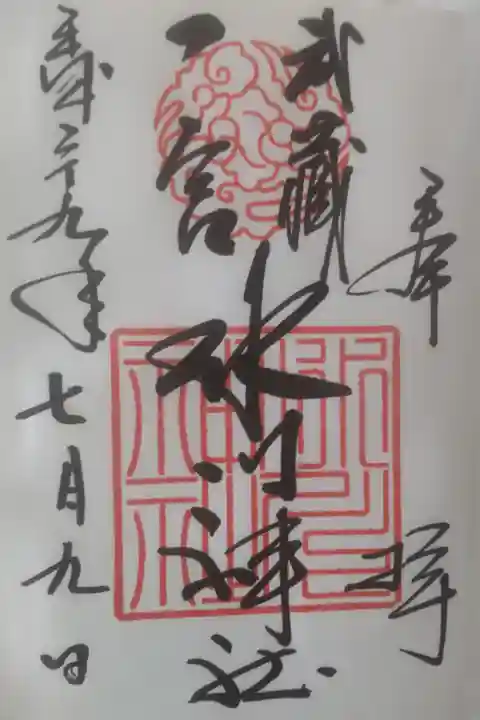 奉拝
武蔵
一宮
氷川神社
平成二十九年七月九日
氷川神社